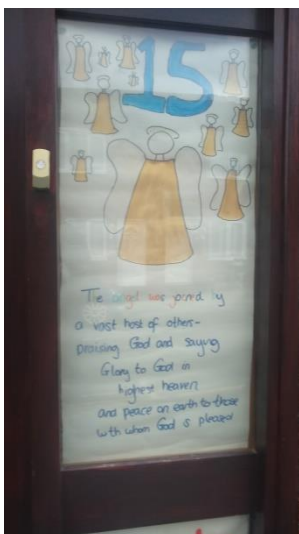 15
The angel was joined by
a vast host of others-
praising God and saying
Glory to God in
highest heaven
and peace on earth to those
with whom God is pleased